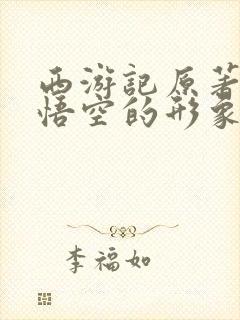 西游記原著
悟空的形象
李福如